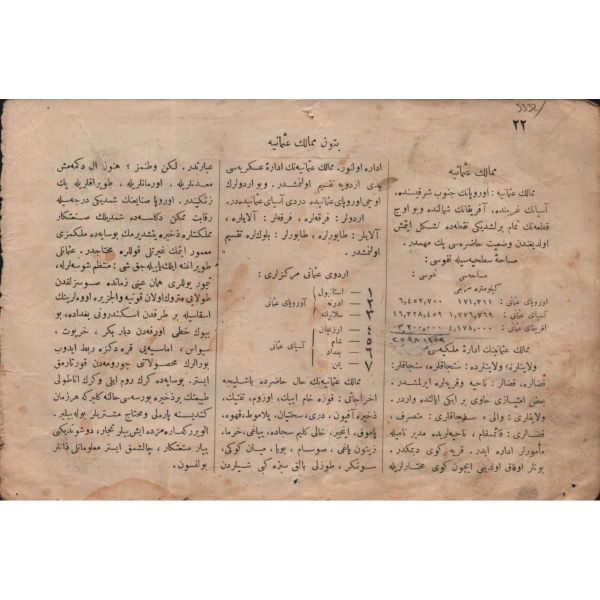 ٢٢
بتون ممالك عثمانيه
ممالك عثمانيه
ممالك عثمانيه : اوروپانك جنوب شرقيسنده،
آسيانك غربنده، آفريقانك شمالنده وبو اوچ
قطعه‌نك تمام برلشديكى نقطه‌ده تشكل ايتمش
اولديغندن وضعيت حاضره‌سى پك مهمدر.
مساحۀ سطحيه‌سيله نفوسى :
مساحه‌سى نفوسى :
كيلومتره مربعى
اوروپاى عثمانى ١٧٦,٣١١ ٦,٤٥٢,٧٠٠
آسياى عثمانى ١,٧٧٦,٧٦٩ ١٦,٣٢٨,٤٥٩
افريقاى عثمانى ٤,١٧٨,٠٠٠ ٣,٢٠٠,٠٠٠
٢٥٩٨١١٥٩
ممالك عثمانيه‌نك ادارۀ ملكيه‌سى
ولايتلره، ولايتلرده : سنجاقلره، سنجاقلر :
قضالر، قضالر : ناحيه وقريه‌لره ايرلمشدر.
بعض امتيازى حاوى بر ايكى ايالتده واردر.
ولايتلرى : والى ، سنجاقلرى : متصرف ،
قضالرى : قائممقام ، ناحيه‌لريده مدير ناميله
مأمورلر اداره ايدر. قريه كوى ديمكدر.
بونلر اوفاق اولديغى ايچون كوى مختارلريله
اداره اولنور. ممالك عثمانيه‌نك ادارۀ عسكريه‌سى
يدى اردويه تقسيم اولنمشدر. وبو اردولرك
اوچى اوروپاى عثمانيده دردى آسياى عثمانيده‌در.
اردولر : فرقه‌لره ، فرقه‌لر : آلايلره ،
آلايلر : طابورلره ، طابورلر : بلوكلره تقسيم
اولنمشدر.
اردوى عثمانى مركزلرى :
١ — استانبول
٢ — ادرنه
٣ — سلانيك
آوروپاى عثمانى
٤ — ارزنجان
٥ — شام
٦ — بغداد
٧ — يمن
آسياى عثمانى
ممالك عثمانيه‌نك حال حاضرده باشليجه
اخراجاتى : قوزه خام ايپك، اوزوم، تفتيك،
ذخيره آفيون، درى، سختيان، پلاموط، قهوه،
پاموق، انجير، خالى كليم سجاده، يپاغى، خرما،
زيتون ياغى، صوسام، بويا، ميان كوكى،
سونكر، طوزلى بالق سبزه كبى شيلردن
عبارتدر. لكن وطنمز ؛ هنوز ال دكمه‌مش
معدنلريله ، اورمانلريله ، طوپراقلريله پك
زنكيندر. اوروپا صنايعنك شمديكى درجه‌سله
رقابت ممكن دكلسه‌ده شمديلك صنعتكار
مملكتلره ذخيره يتشديرمك بوسايه‌ده ملكمزى
معمور ايتمك غيرتلى قوللره محتاجدر. عثمانلى
طوپراغنه ايلك پاپيله‌جق شى : منتظم شوسه‌لرله،
تيمور يوللرى همان عينى زمانده صوسزلقدن
طولايى متروك اولان قونيه والجزيره اووه‌لرينك
اسقاسيله بر طرفدن اسكندرونى بغداده ، بو
بيوك خطى اورفه‌دن ديار بكر ، خربوت ،
سيواس ، اماسيه‌يى قره دكزه ربط ايدوب
بورالرك محصولاتنى چورومه‌دن قورتارمق
ايستر. بوسايه‌ده كرك روم ايلى وكرك اناطولى
طبيعتك بر ذخيره بورسه‌سى حالنه كليركه هرزمان
كنديسنه پاره‌لى ومحتاج مشتريلر بوله بيلير.